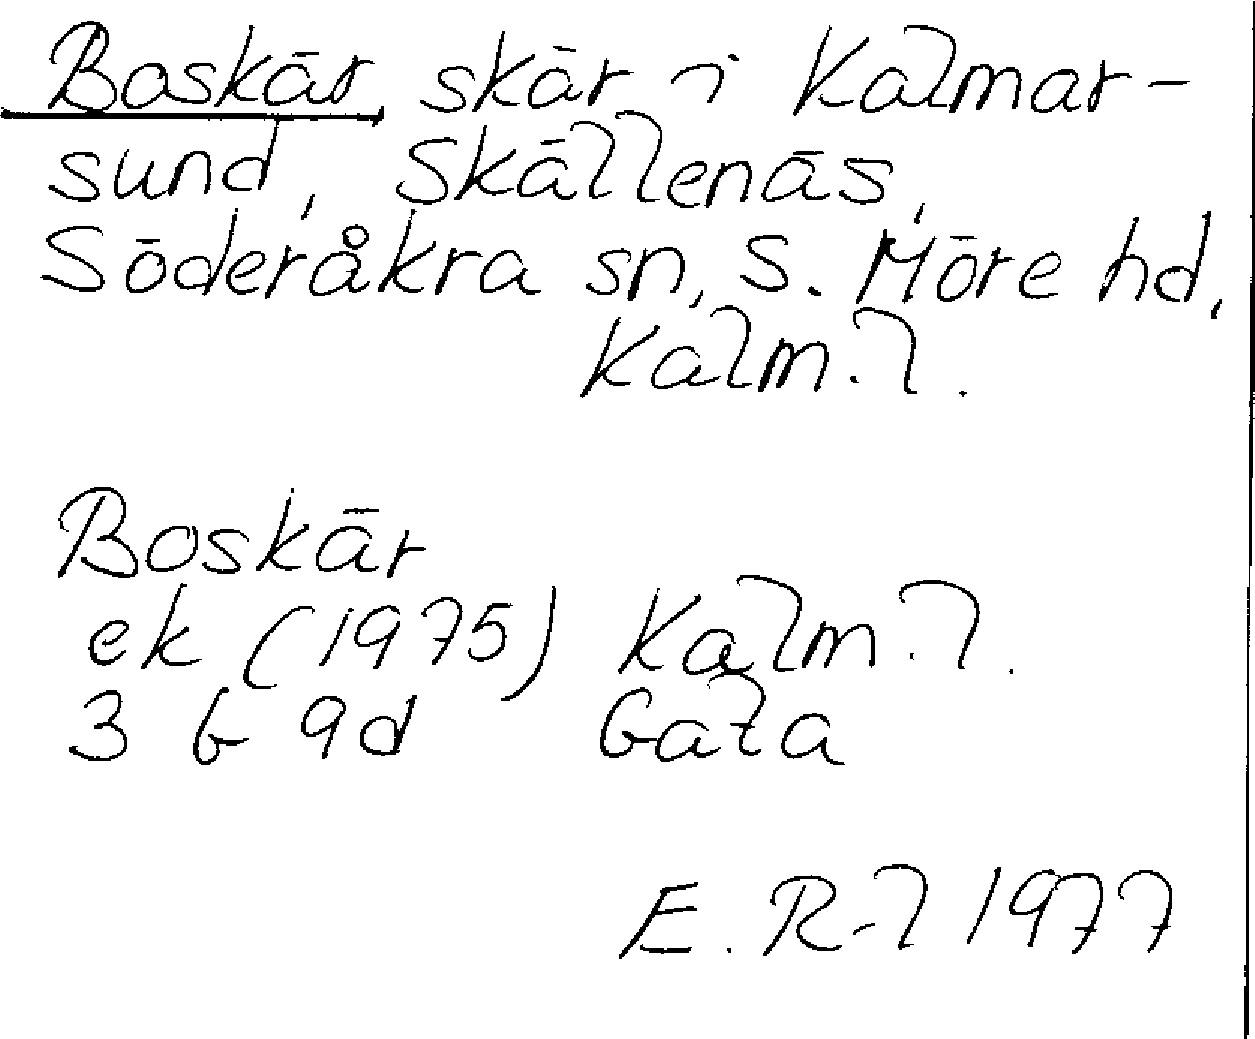 Boskär, skär i Kalmar-
sund, Skällenäs,
Söderåkra sn, S. Möre hd,
Kalm. l.
Boskär
ek (1975) Kalm. l.
3 G 9d Gata
E. R-l 1977